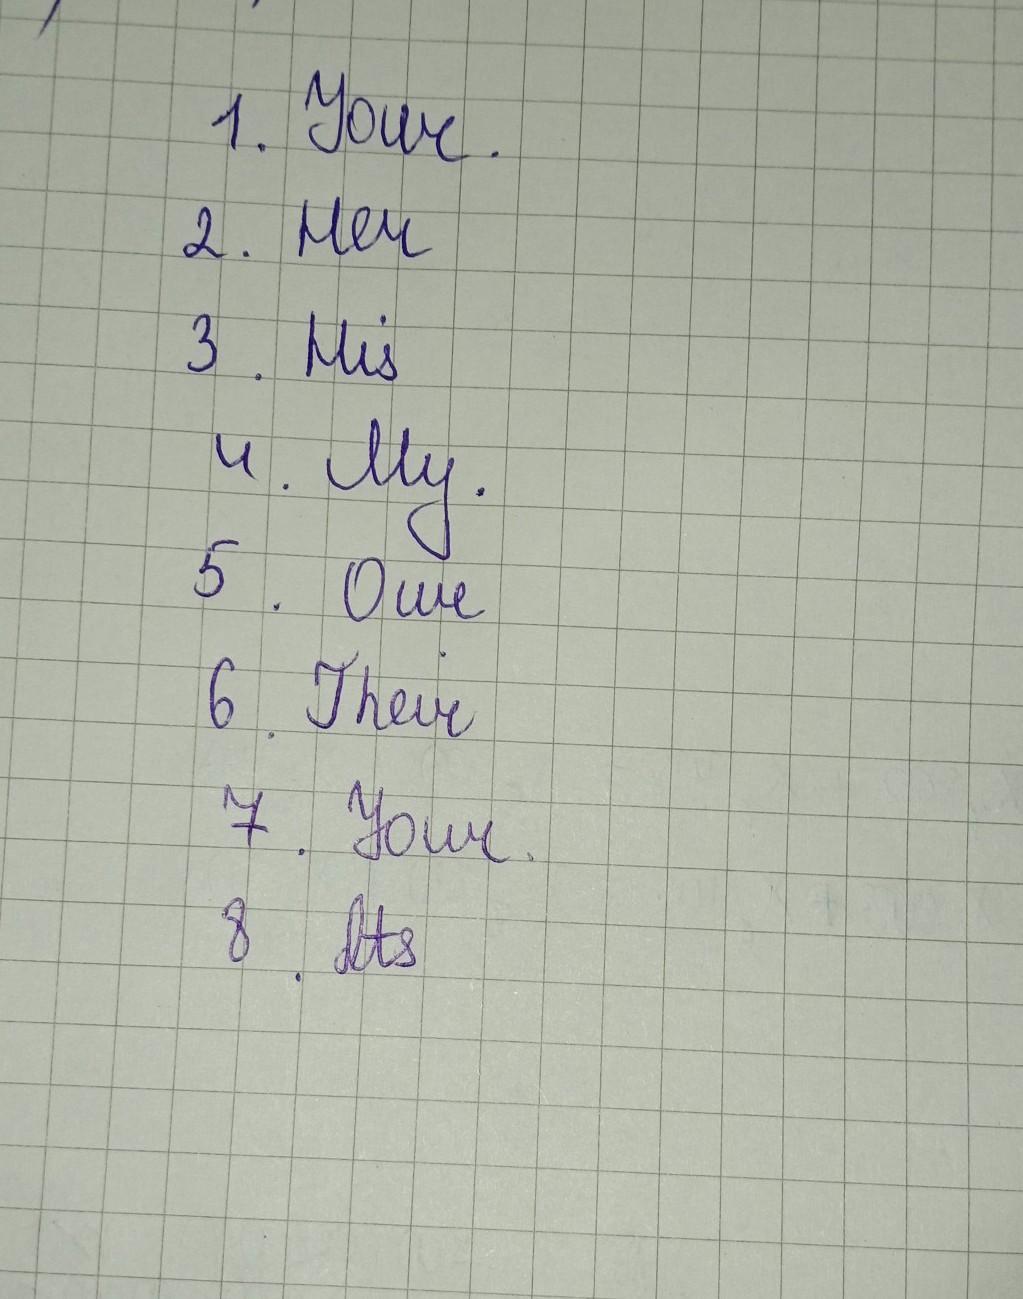 1. Your.
2. Her
3. His
4. My.
5. Our
6. Their
7. Your.
8. Its